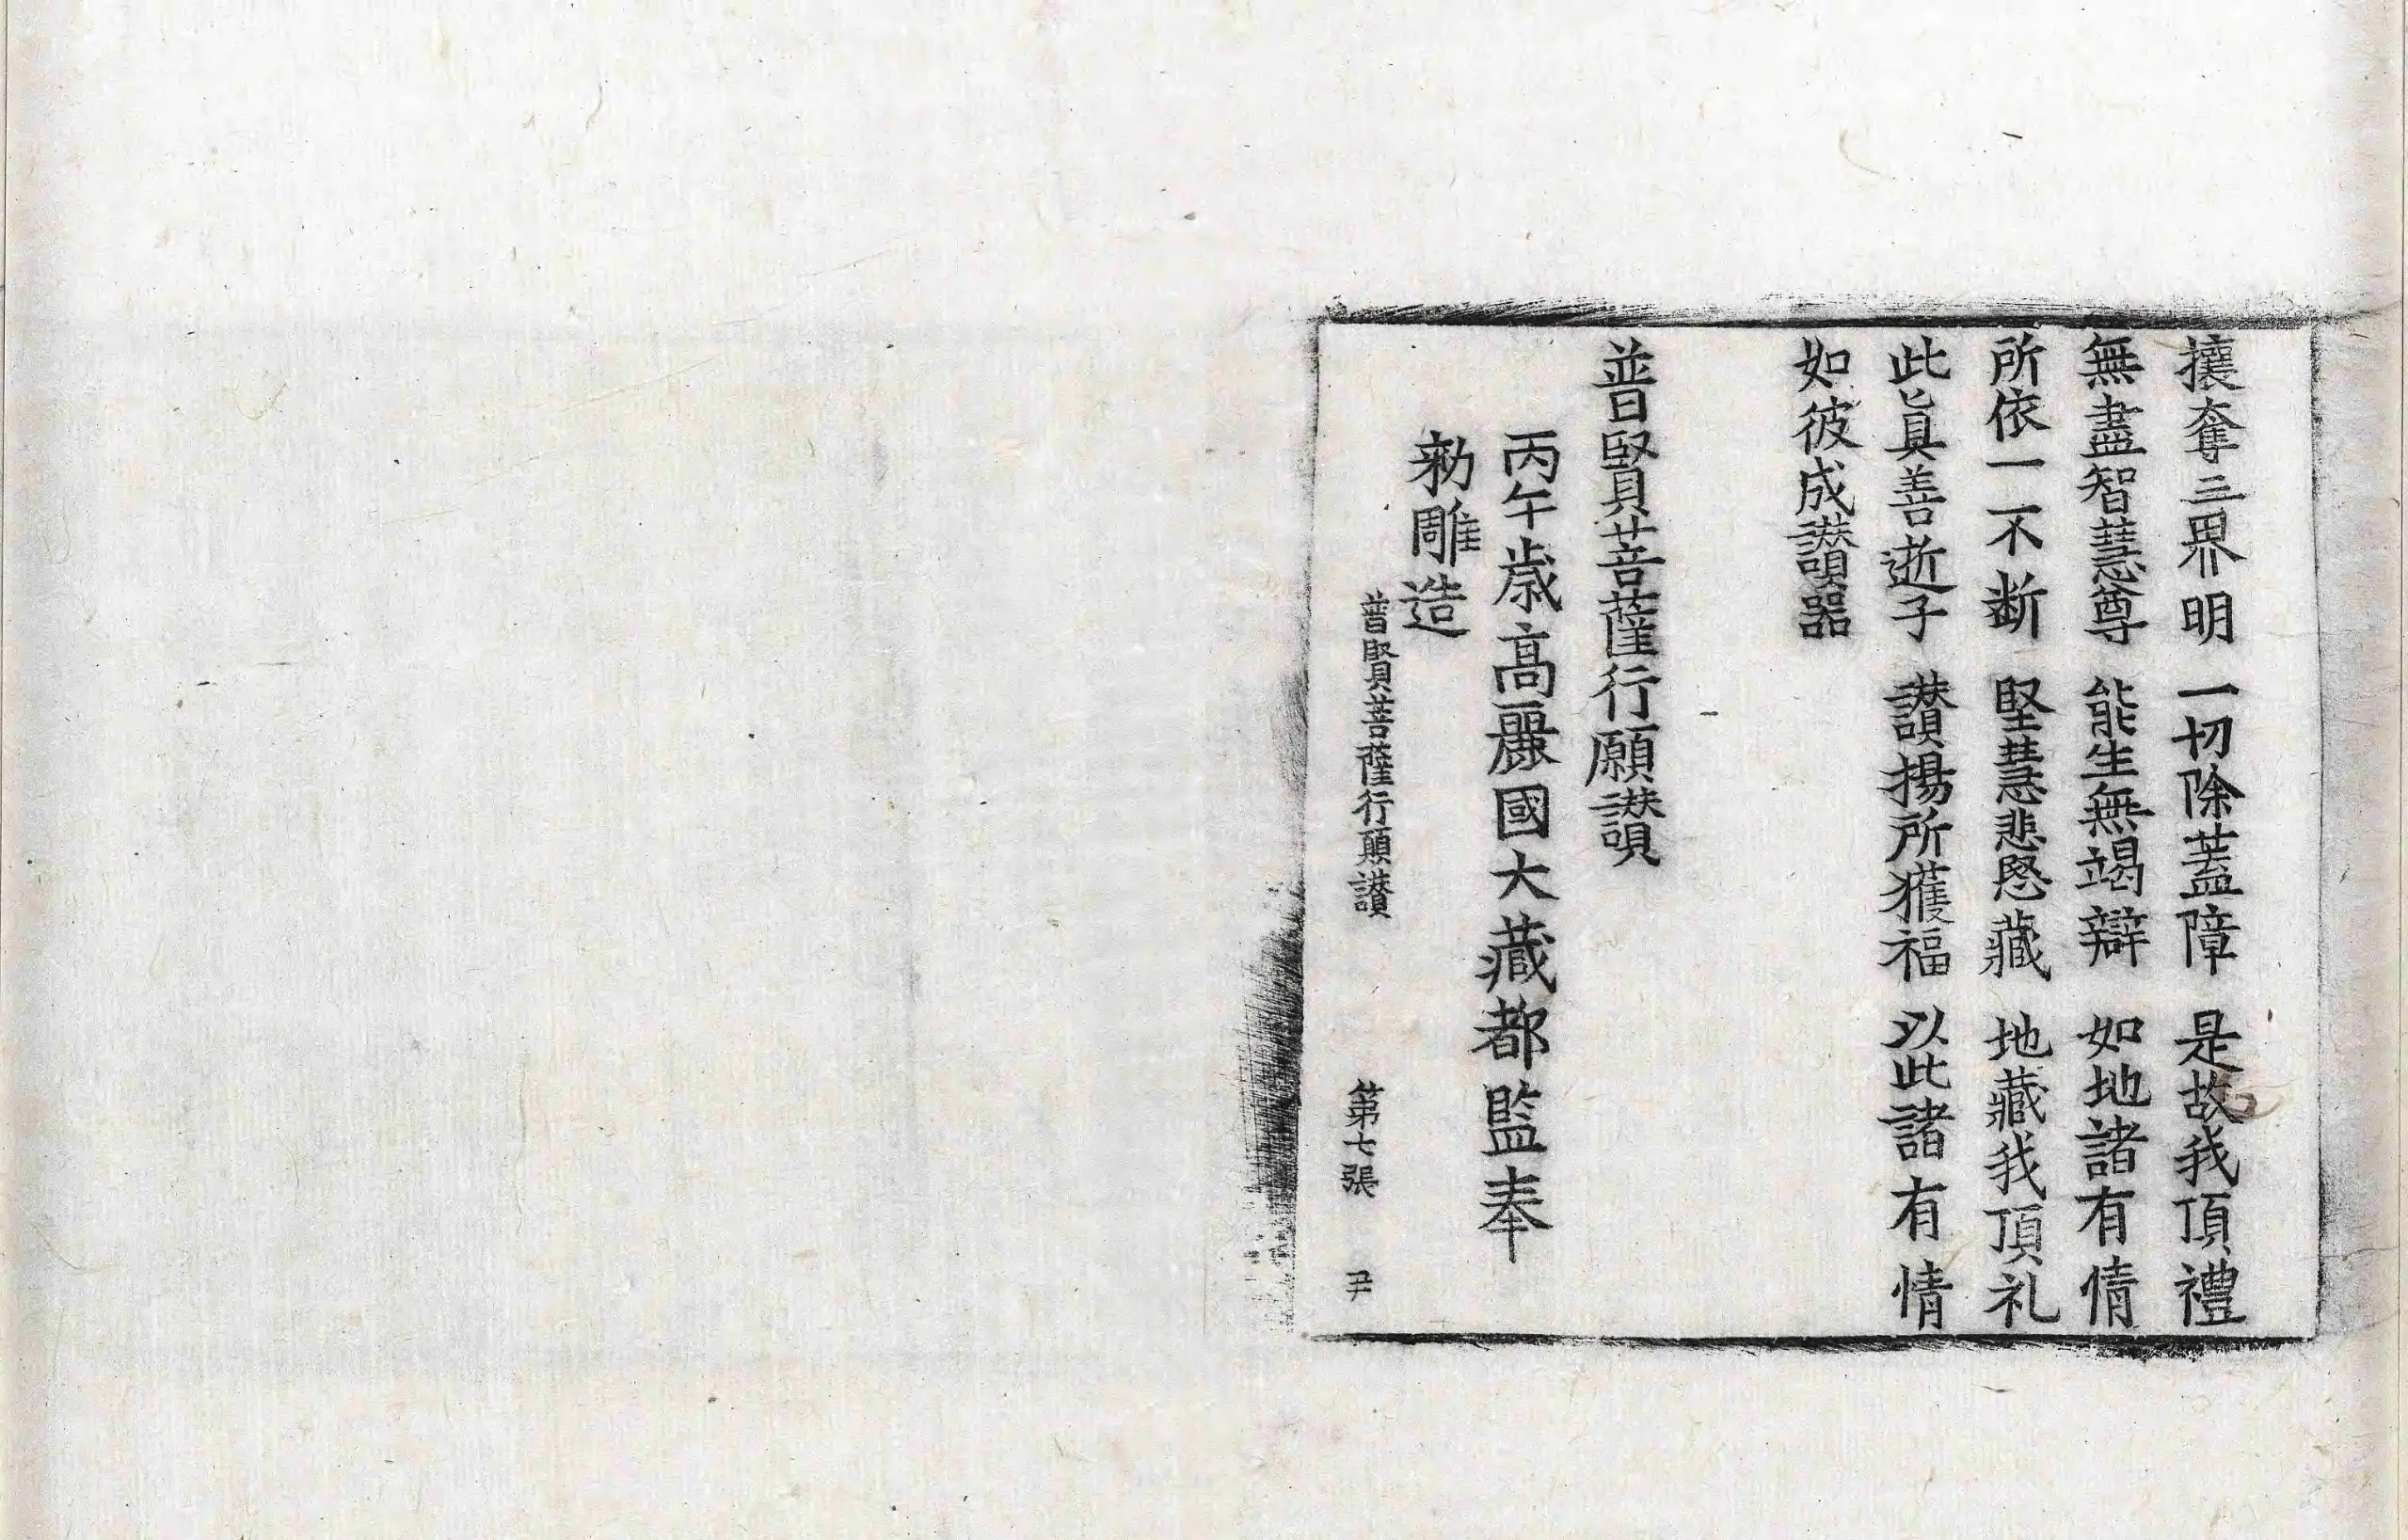 攘奪三界明 一切除蓋障 是故我頂禮
無盡智慧尊 能生無竭辯 如地諸有情
所依一不断 堅慧悲愍藏 地藏我頂礼
此真善逝子 讃揚所獲福 以此諸有情
如彼成讃器
普賢菩薩行願讃
丙午歳高麗國大藏都監奉
勑雕造
普賢菩薩行願讃 第七張 尹